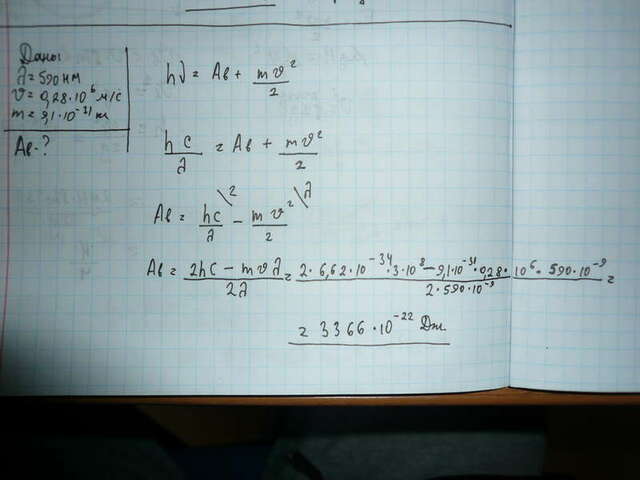 Дано
λ = 590 нм
υ = 0,28·10⁶ м/с
m = 9,1·10⁻³¹ кг
Aв-?
hν = Aв + mυ²/2
hc/λ = Aв + mυ²/2
Aв = hc/λ \2 - mυ²/2 \λ
Aв = (2hc - mυλ)/2λ = (2·6,62·10⁻³⁴·3·10⁸ - 9,1·10⁻³¹·0,28·10⁶·590·10⁻⁹)/(2·590·10⁻⁹) =
= 3366·10⁻²² Дж.